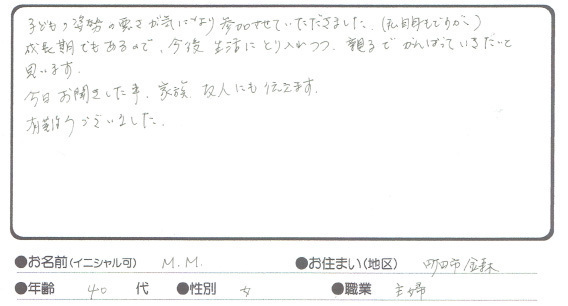 子どもの姿勢の悪さが気になり参加させていただきました。(私自身もですが…)
成長期でもあるので、今後生活にとり入れつつ、親子でがんばっていきたいと
思います。
今日お聞きした事、家族友人にも伝えます。
有難うございました。
●お名前(イニシャル可) M.M. ●お住まい(地区) 町田市金森
●年齢 40 代 ●性別 女 ●職業 主婦